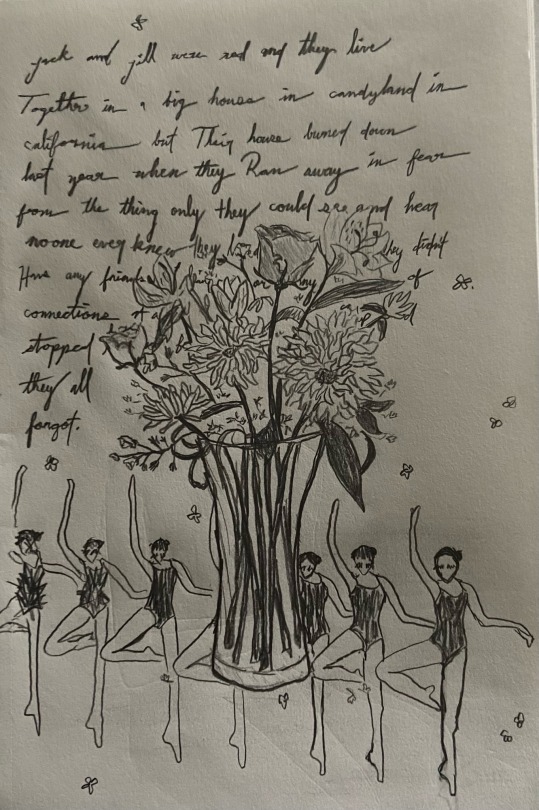 jack and jill were sad and they live
Together in a big house in candyland in
california but Their house buned down
last year when they Ran away in fear
from the thing only they could see and hear
noone ever knew they they didnt
Have any friends or any of
connections
stopped
they all
forgot.